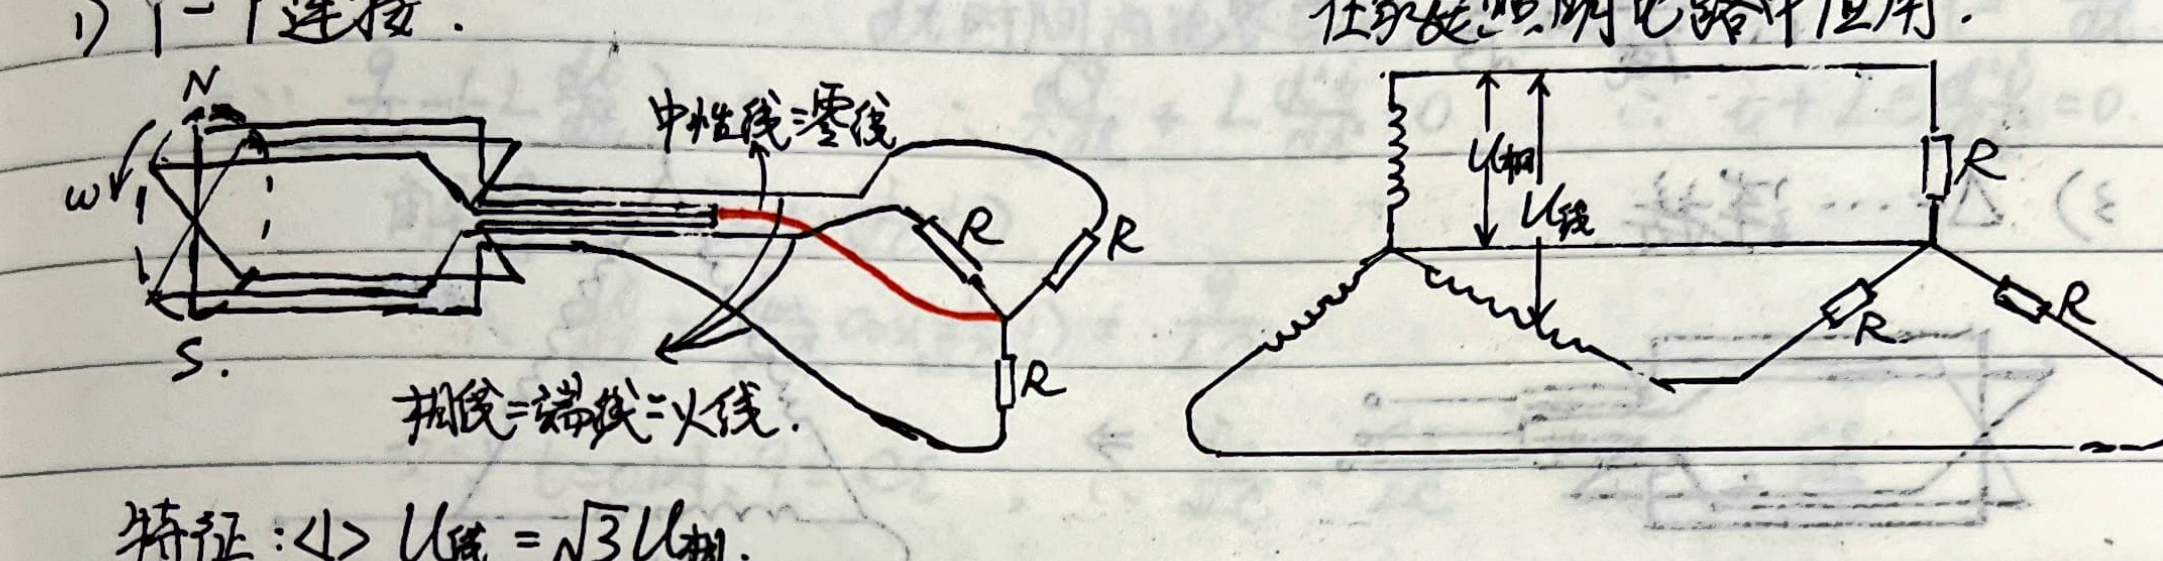 1) Y-Y连接.
在家庭照明电路中应用.
N
中性线=零线
ω
R
R
R
S.
相线=端线=火线.
U相
U线
R
R
R
特征:<1> U线 = √3 U相.